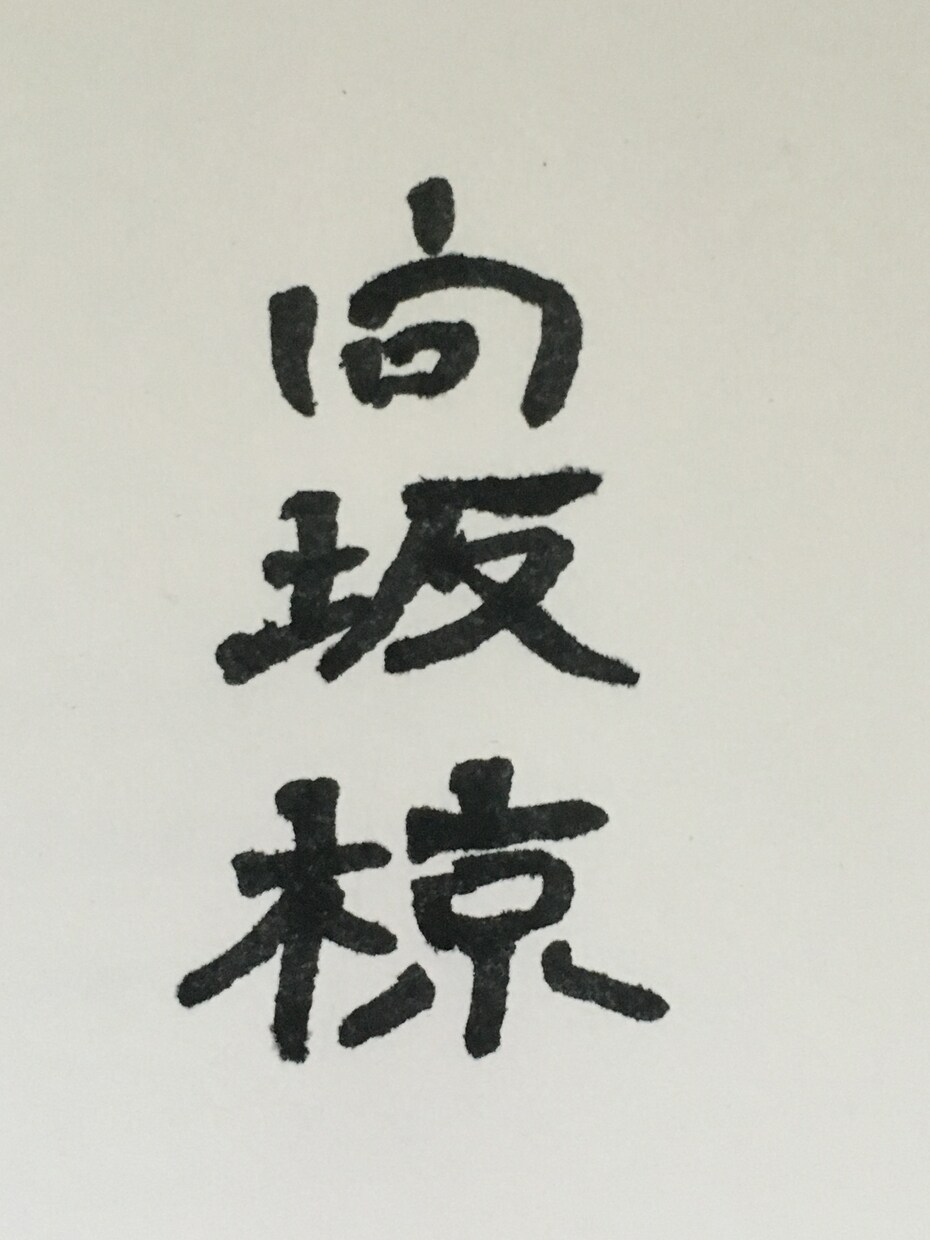 向坂椋